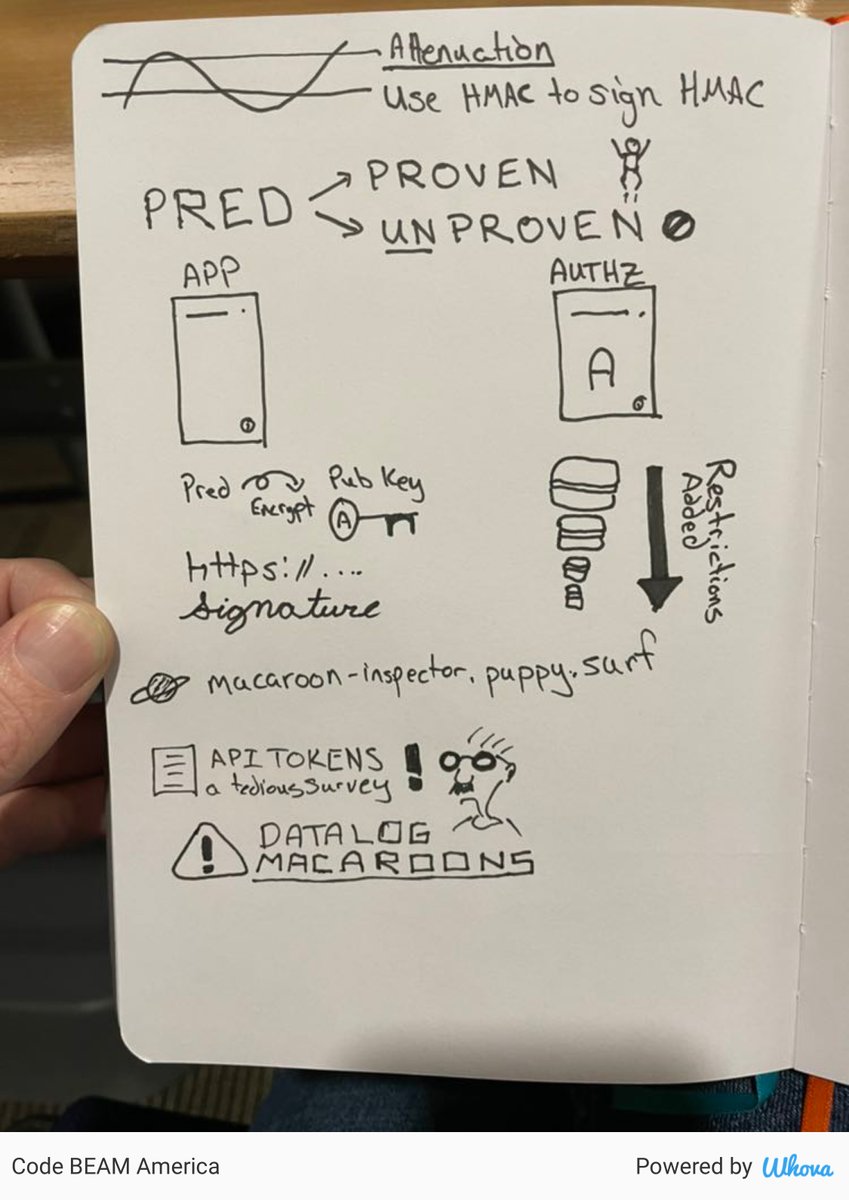 Attenuation
Use HMAC to sign HMAC
PRED
PROVEN
UNPROVEN
APP
AUTHZ
A
Pred
Encrypt
Pub Key
A
https://....
signature
Restrictions
Added
macaroon-inspector.puppy.surf
API TOKENS
a tedious survey
!
!
DATALOG
MACAROONS
Code BEAM America
Powered by Whova